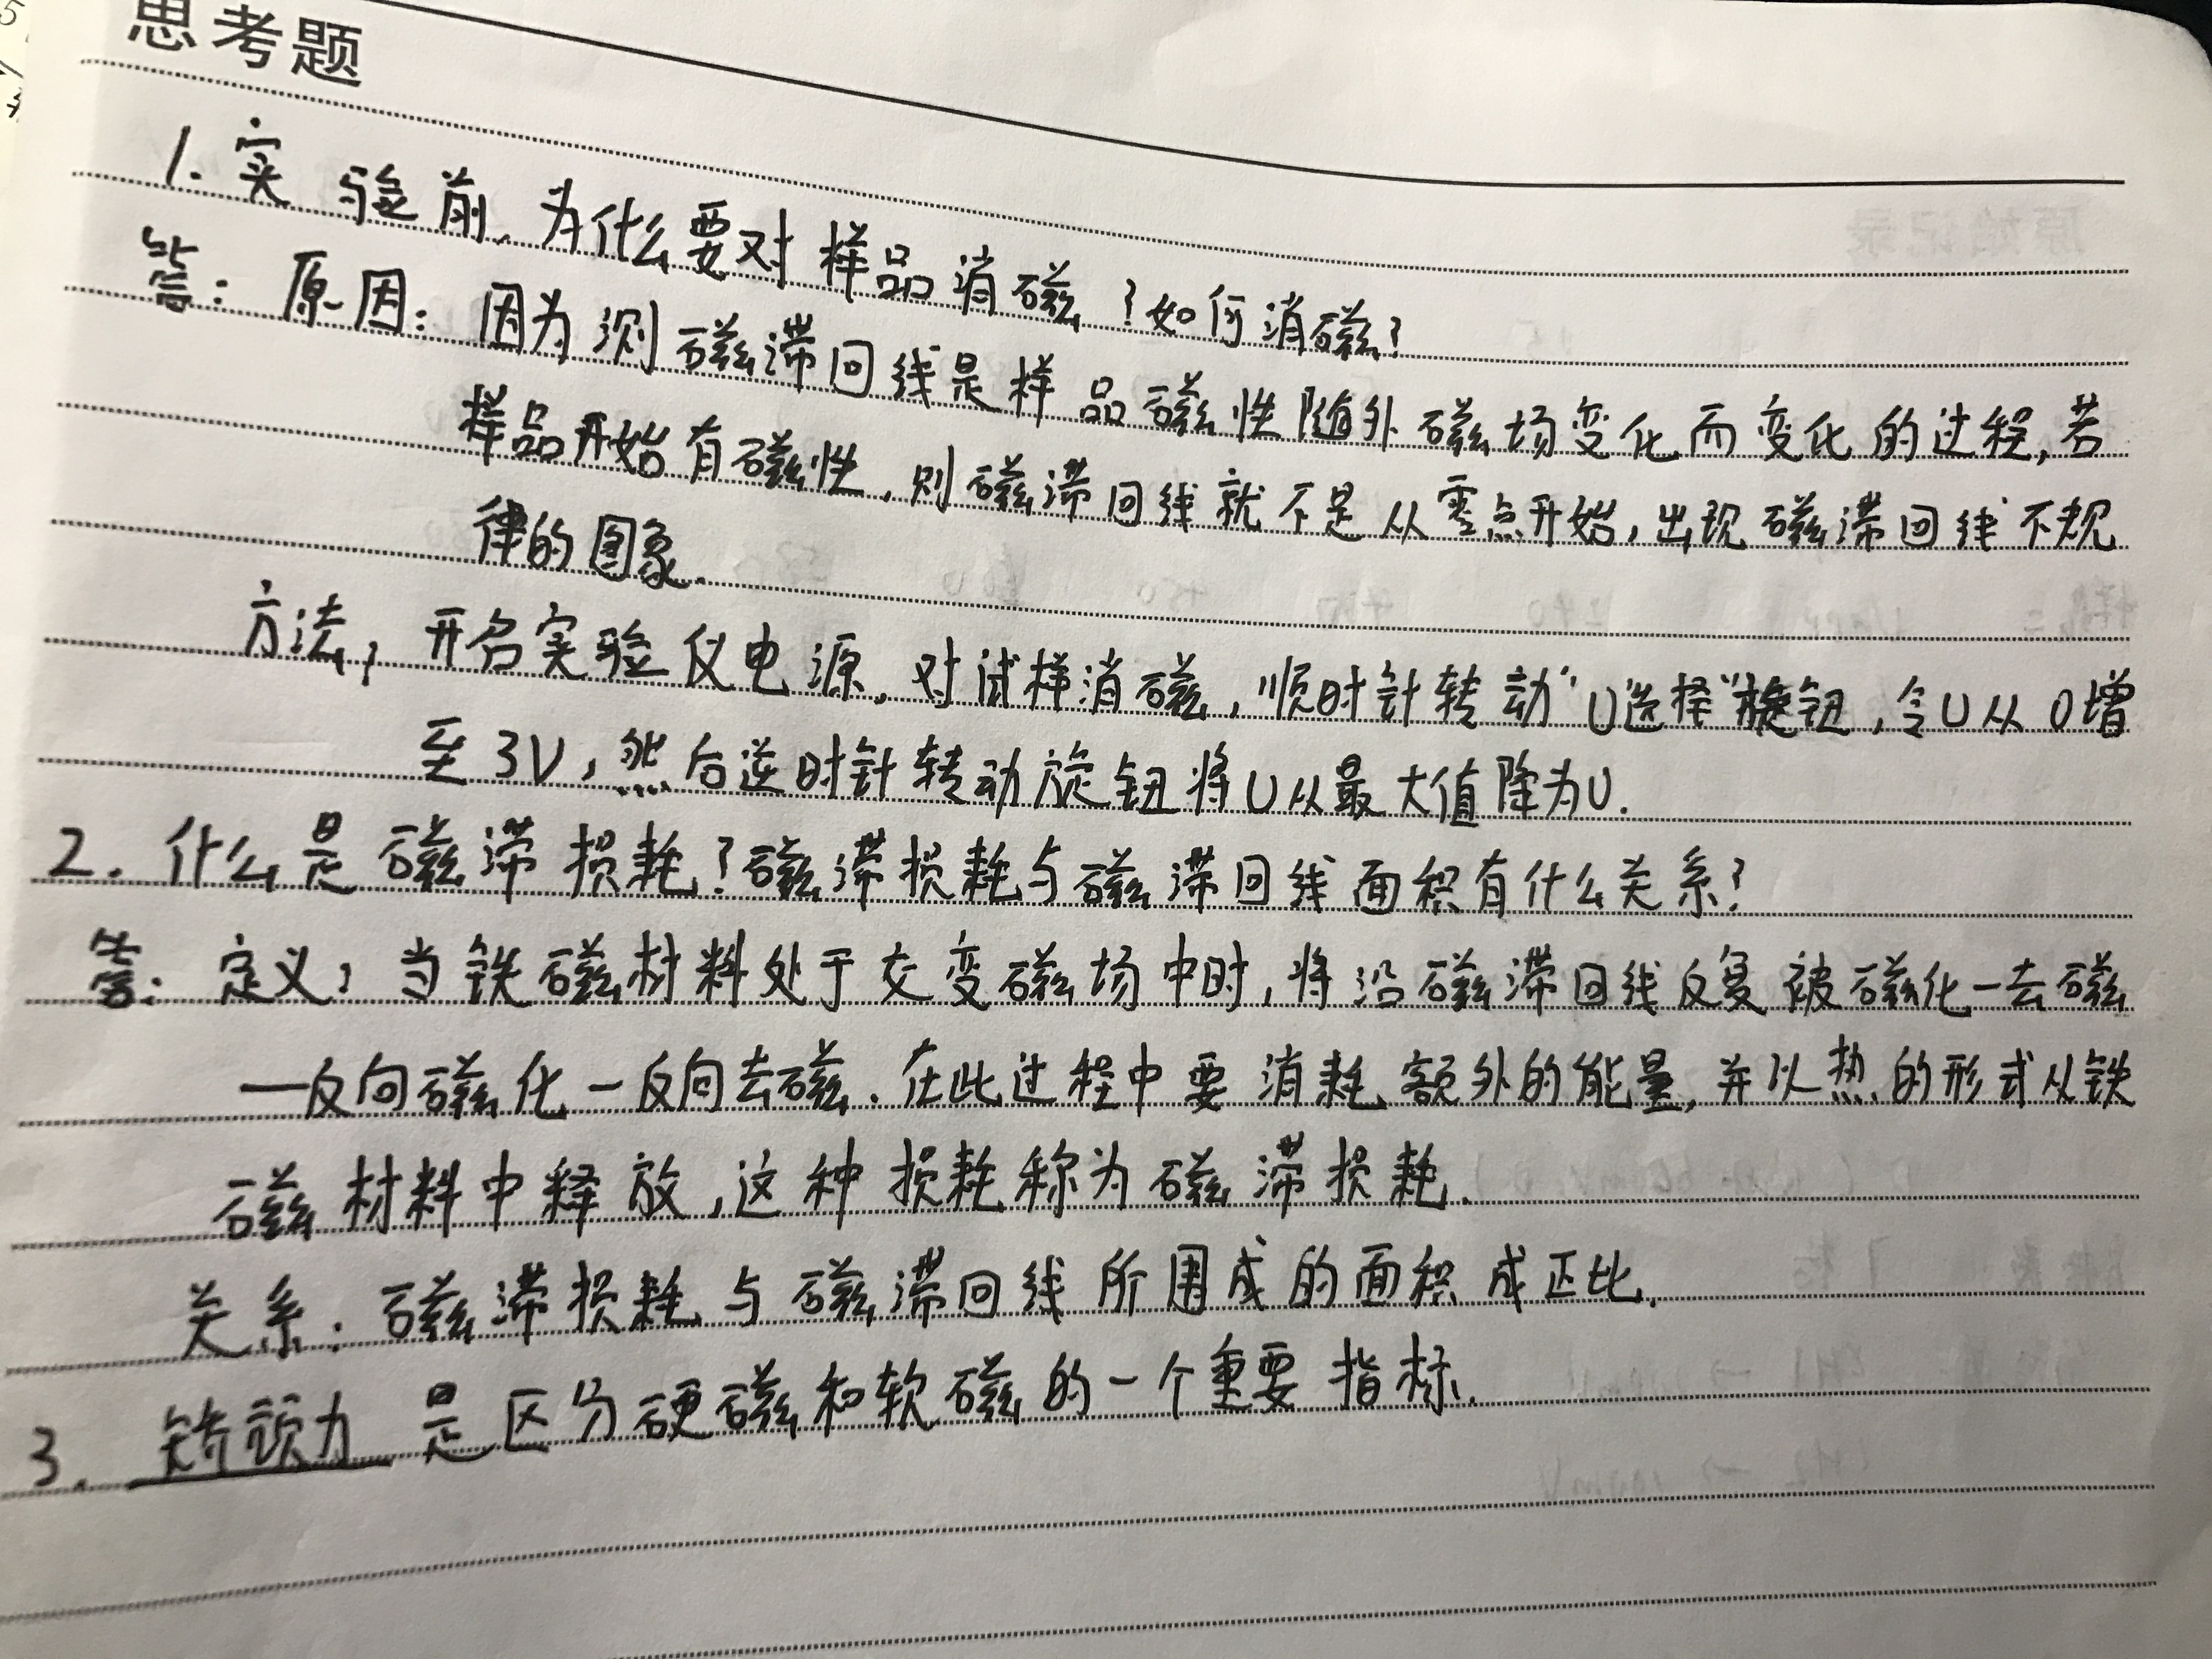 思考题
1. 实验前,为什么要对样品消磁?如何消磁?
答:原因:因为测磁滞回线是样品磁性随外磁场变化而变化的过程,若
样品开始有磁性,则磁滞回线就不是从零点开始,出现磁滞回线不规
律的图象.
方法:开启实验仪电源,对试样消磁,顺时针转动"U选择"旋钮,令U从0增
至3V,然后逆时针转动旋钮将U从最大值降为0.
2. 什么是磁滞损耗?磁滞损耗与磁滞回线面积有什么关系?
答:定义:当铁磁材料处于交变磁场中时,将沿磁滞回线反复被磁化—去磁
—反向磁化—反向去磁.在此过程中要消耗额外的能量,并以热的形式从铁
磁材料中释放,这种损耗称为磁滞损耗.
关系:磁滞损耗与磁滞回线所围成的面积成正比.
3. 矫顽力是区分硬磁和软磁的一个重要指标.